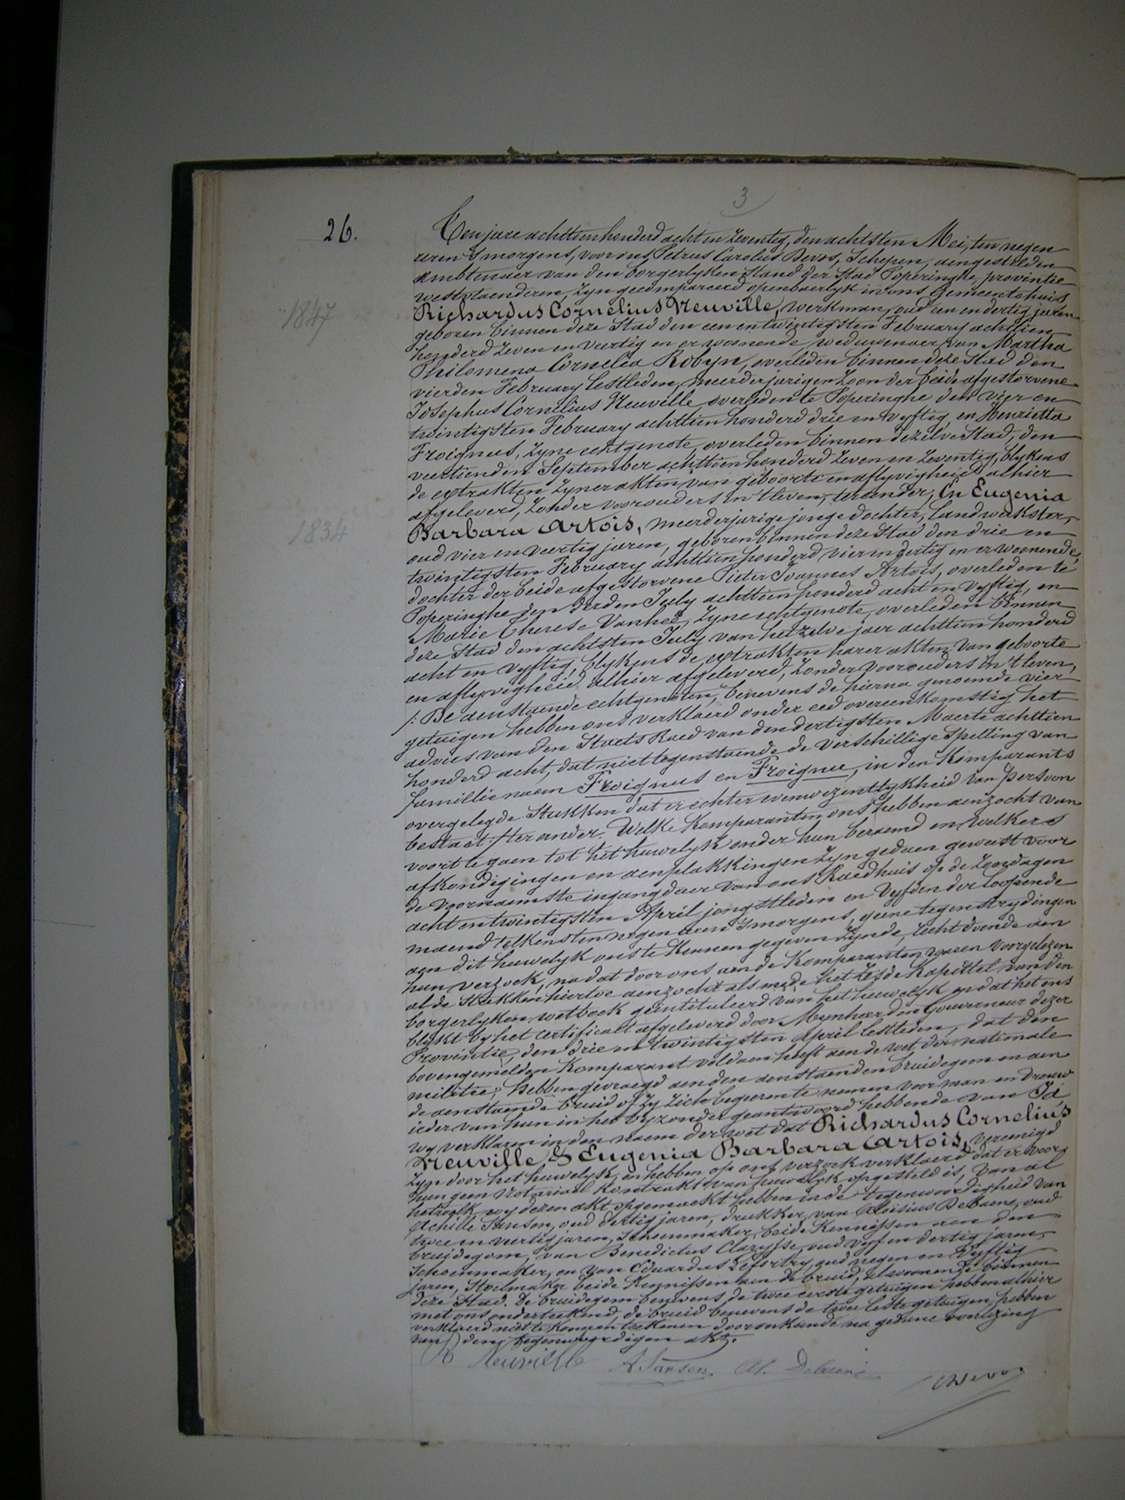 3
26.
Ten jare achttien honderd acht en zeventig, den achtsten Mei, ten negen
uren 's morgens, voor ons Petrus Carolus Devos, Schepen, aengestelden
ambtenaer van den borgerlyken stand der Stad Poperinghe, provintie
westvlaenderen, zyn gecompareerd openbaerlyk in ons gemeentehuis
1847
Richardus Cornelius Neuville, werkman, oud een en dertig jaren
geboren binnen deze Stad den een en twintigsten February achttien
honderd zeven en veertig en er woonende, weduwenaer van Martha
Philomena Cornelia Robyn, overleden binnen deze Stad den
vierden February lestleden, meerderjarigen zoon der beide afgestorvene
Josephus Cornelius Neuville overleden te Poperinghe den vier en
twintigsten February achttien honderd drie en vyftig, en Henrietta
Froignus, zyne echtgenote, overleden binnen dezelve Stad, den
veertienden September achttien honderd zeven en zeventig, blykens
de extrakten zyner akten van geboorte en aflyvigheid alhier
afgeleverd, zonder voorouders in 't leven, ter eender; En Eugenia
1834
Barbara Artois, meerderjarige jonge dochter, landwerkster,
oud vier en veertig jaren, geboren binnen deze Stad den drie en
twintigsten February achttien honderd vier en dertig en er woonende,
dochter der beide afgestorvene Pieter Joannes Artois, overleden te
Poperinghe den derden July achttien honderd acht en vyftig, en
Marie Therese Vanhee, zyne echtgenote, overleden binnen
deze Stad den achtsten July van hetzelve jaer achttien honderd
acht en vyftig, blykens de extrakten harer akten van geboorte
en aflyvigheid alhier afgeleverd, zonder voorouders in 't leven,
/: De aenstaende echtgenoten, benevens de hierna genoemde vier
getuigen hebben ons verklaerd onder eed overeenkomstig het
advies van den Staets Raed van den dertigsten Maerte achttien
honderd acht, dat niettegenstaende de verschillige spelling van
famillie naem Froignus en Froignue, in den Komparants
overgelegde Stukken dat er echter wenwezentlykheid van persoon
bestaet / ter ander. Welke Komparanten ons hebben aenzocht van
voort te gaen tot het huwelyk onder hun beraemd en welkers
afkondigingen en aenplakkingen zyn gedaen geweest voor
de voornaemste ingangdeur van ons Raedhuis op de Zondagen
acht en twintigsten April jongstleden en vyfden der loopende
maend telkens ten negen uren 's morgens, geene tegenstrydingen
aen dit huwelyk ons te kennen gegeven zynde, recht doende aen
hun verzoek, na dat door ons aen de Komparanten waren voorgelezen
al de Stukken hiertoe aenzocht als mede het zesde Kapittel van den
borgerlyken wetboek geintituleerd van het huwelyk en dat het ons
blykt by het certificaet afgeleverd door Mynheer den Gouverneur dezer
Provintie, den drie en twintigsten April lestleden, dat den
bovengemelden Komparant voldaen heeft aen de wet der nationale
militie; Hebben gevraegd aen den aenstaenden bruidegom en aen
de aenstaende bruid of zy zich begeerente nemen voor man en vrouw
ieder van hun in het byzonder geantwoord hebbende van Ja
wy verklaren in den naem der wet dat Richardus Cornelius
Neuville & Eugenia Barbara Artois, vereenigd
zyn door het huwelyk, en hebben op ons verzoek verklaerd dat er voor
hun geen notariael kontrakt van huwelyk opgesteld is, van al
hetwelk wy dezen akt opgemaekt hebben in de tegenwoordigheid van
Achille Sansen, oud dertig jaren, drukker, van Aloisius Debaene, oud
twee en veertig jaren, schoenmaker, beide kennissen aen den
bruidegom, van Benedictus Clarysse, oud vyf en dertig jaren,
Schoenmaker, en van Eduardus Lefortry, oud negen en vyftig
jaren, Stoelmaker beide kennissen aen de bruid, al woonende binnen
deze Stad. De bruidegom benevens de twee eerste getuigen hebben alhier
met ons onderteekend, de bruid benevens de twee leste getuigen hebben
verklaerd niet te konnen teekenen door onkunde na gedane voorlezing
van dezen tegenwoordigen akt.
R Neuville A. Sansen. Al. Debaene
CDevos